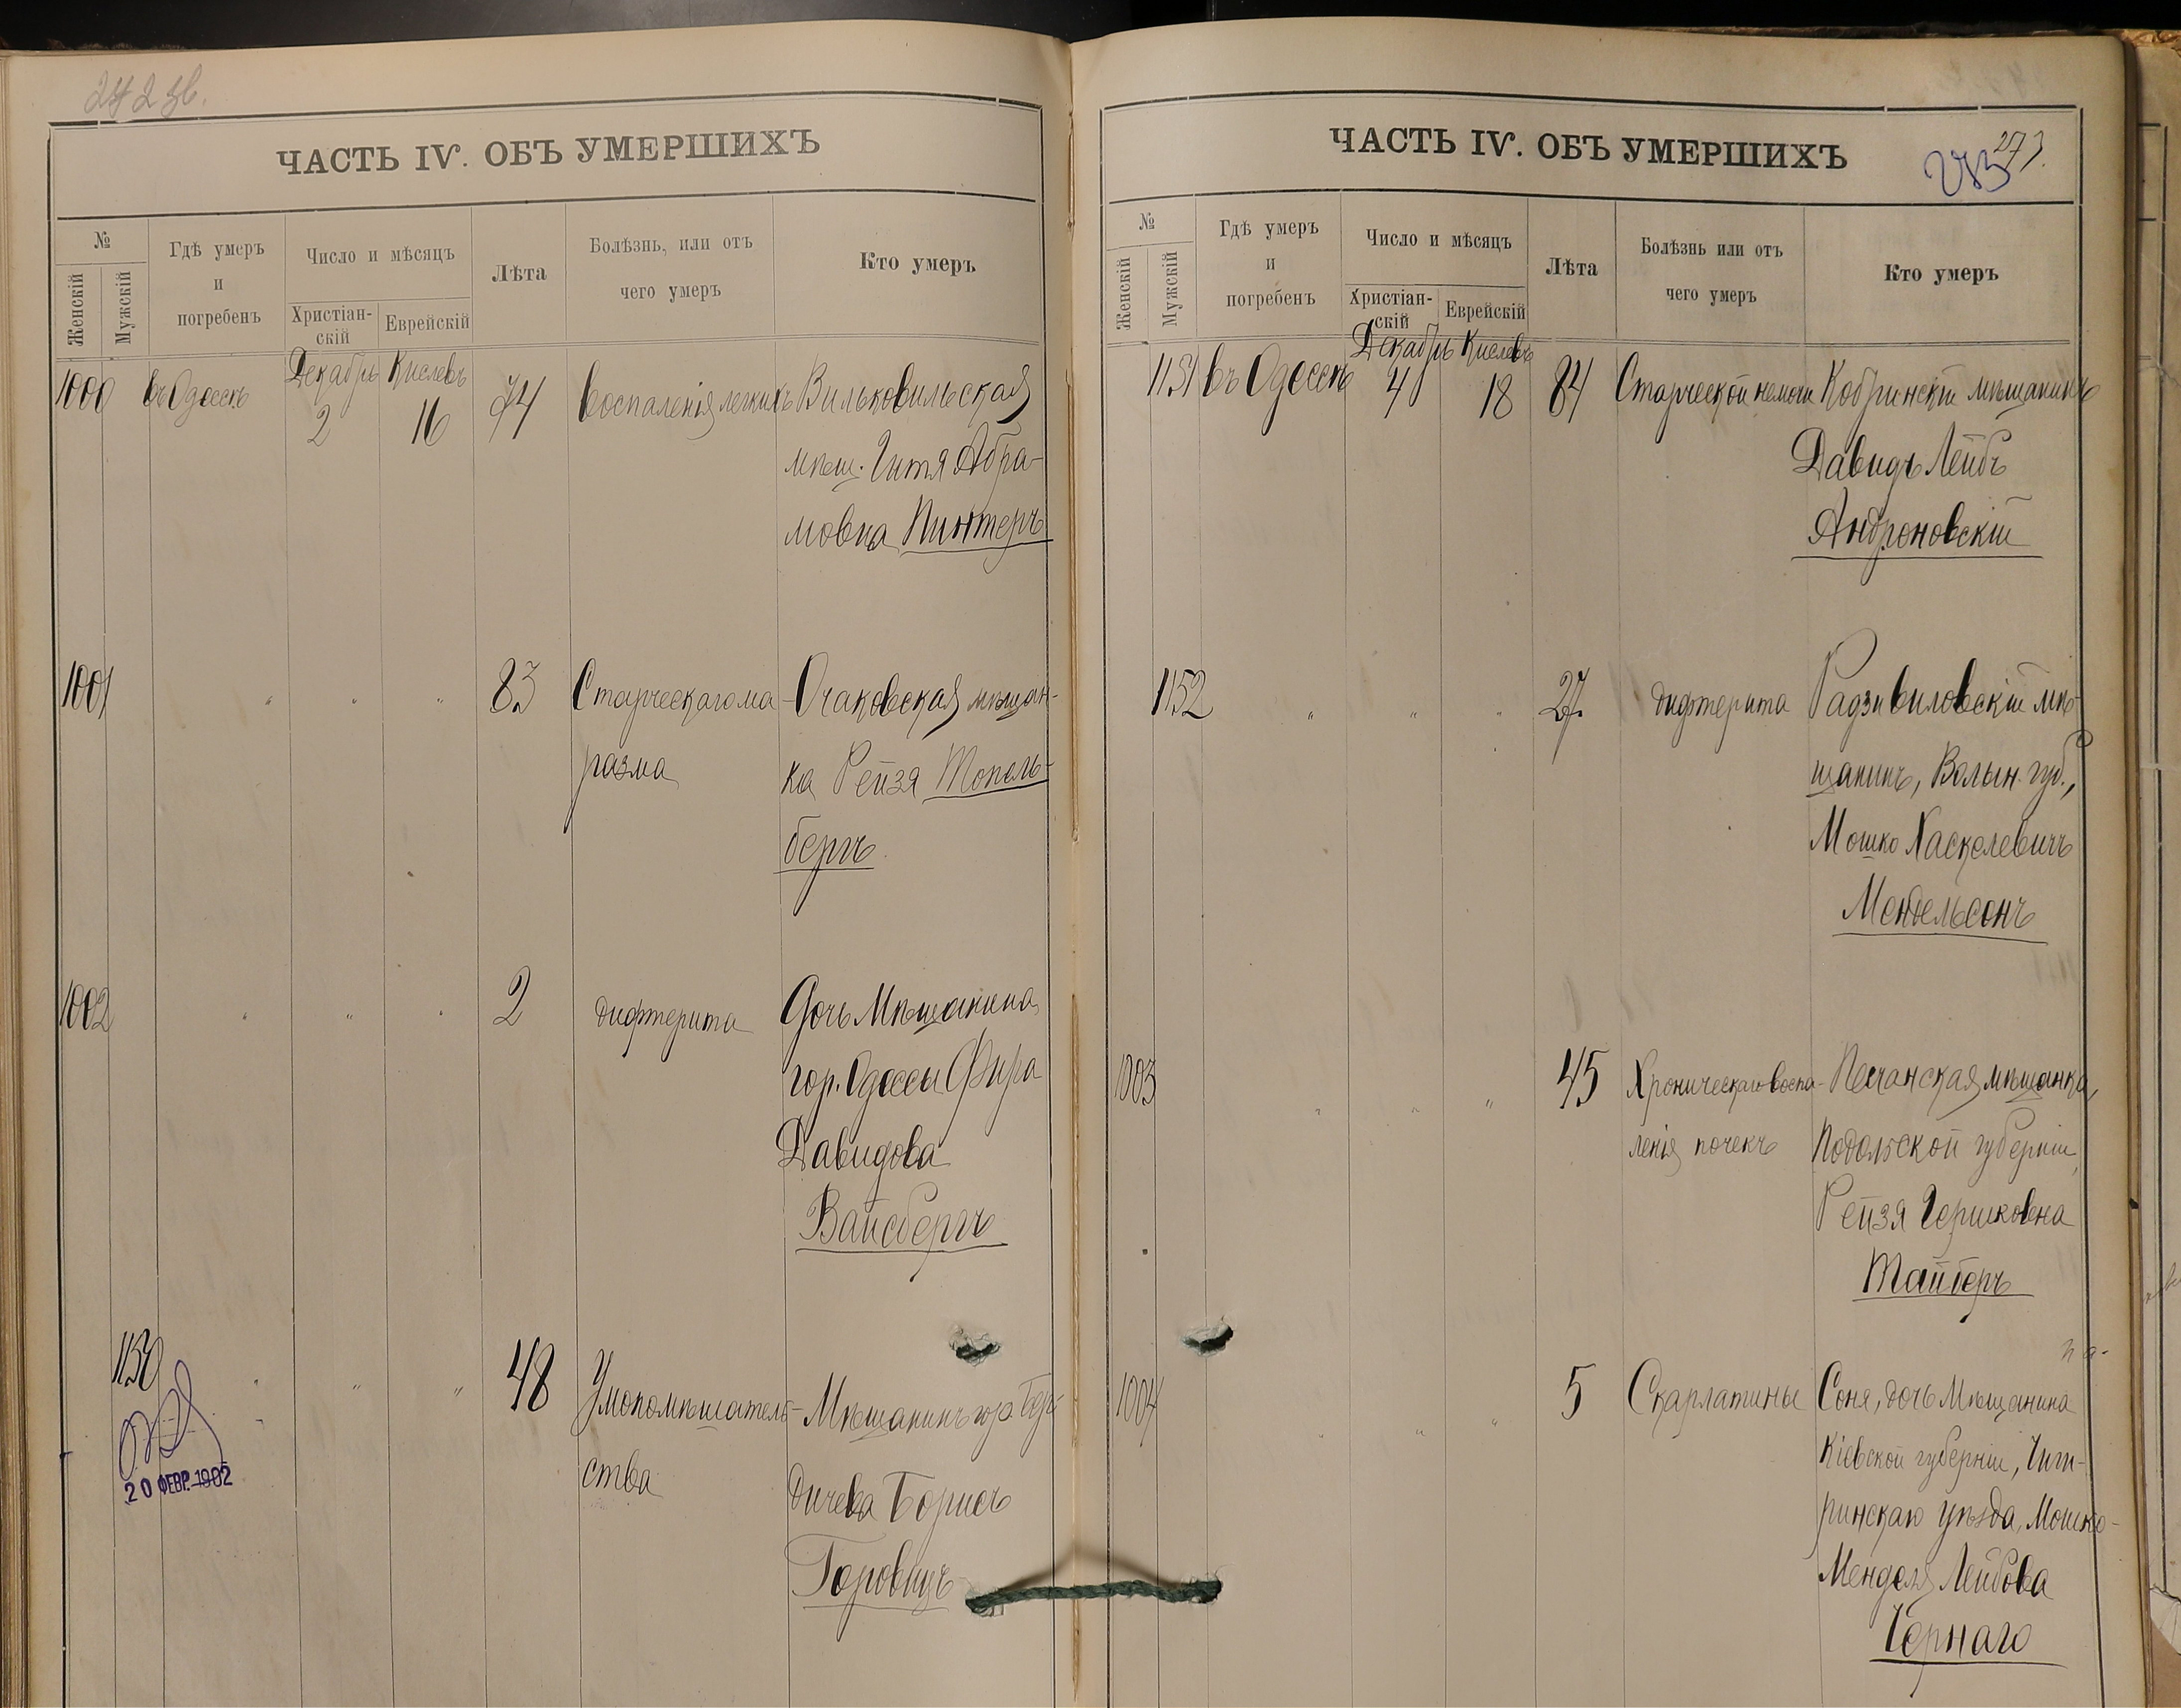 ЧАСТЬ IV. ОБЪ УМЕРШИХЪ
№
Женскій
Мужскій
Гдѣ умеръ
и
погребенъ
Число и мѣсяцъ
Христіан-
скій
Еврейскій
Лѣта
Болѣзнь, или отъ
чего умеръ
Кто умеръ
Декабрь Кислевъ
1000 въ Одессѣ 2 16 74 воспаленія легкихъ Вильковильская
мѣщ. Гитя Абра-
мовна Пинтеръ
1001 " " " 83 Старческаго ма- Очаковская мѣщан-
разма ка Рейзя Топель-
бергъ
1002 " " " 2 дифтерита Дочь Мѣщанина
гор. Одессы Фира
Давидова
Вайсбергъ
1150 " " " 48 Умопомѣшатель- Мѣщанинъ гор. Бер-
ства дичева Борисъ
Горовицъ
20 ФЕВР. 1902
ЧАСТЬ IV. ОБЪ УМЕРШИХЪ
273.
№
Женскій
Мужскій
Гдѣ умеръ
и
погребенъ
Число и мѣсяцъ
Христіан-
скій
Еврейскій
Лѣта
Болѣзнь или отъ
чего умеръ
Кто умеръ
Декабрь Кислевъ
1151 въ Одессѣ 4 18 84 Старческой немощи Кобринскій мѣщанинъ
Давидъ Лейбъ
Андроновскій
1152 " " " 27 дифтерита Радзивиловскій мѣ-
щанинъ, Волын. губ.,
Мошко Хаскелевичъ
Мендельсонъ
1003 " " " 45 Хроническаго воспа- Песчанская мѣщанка,
ленія почекъ Подольской губерніи,
Рейзя Гершковна
Тайберъ
1004 " " " 5 Скарлатины Соня, дочь Мѣщанина
Кіевской губерніи, Чиги-
ринскаго уѣзда, Мошко-
Менделя Лейбова
Чернаго